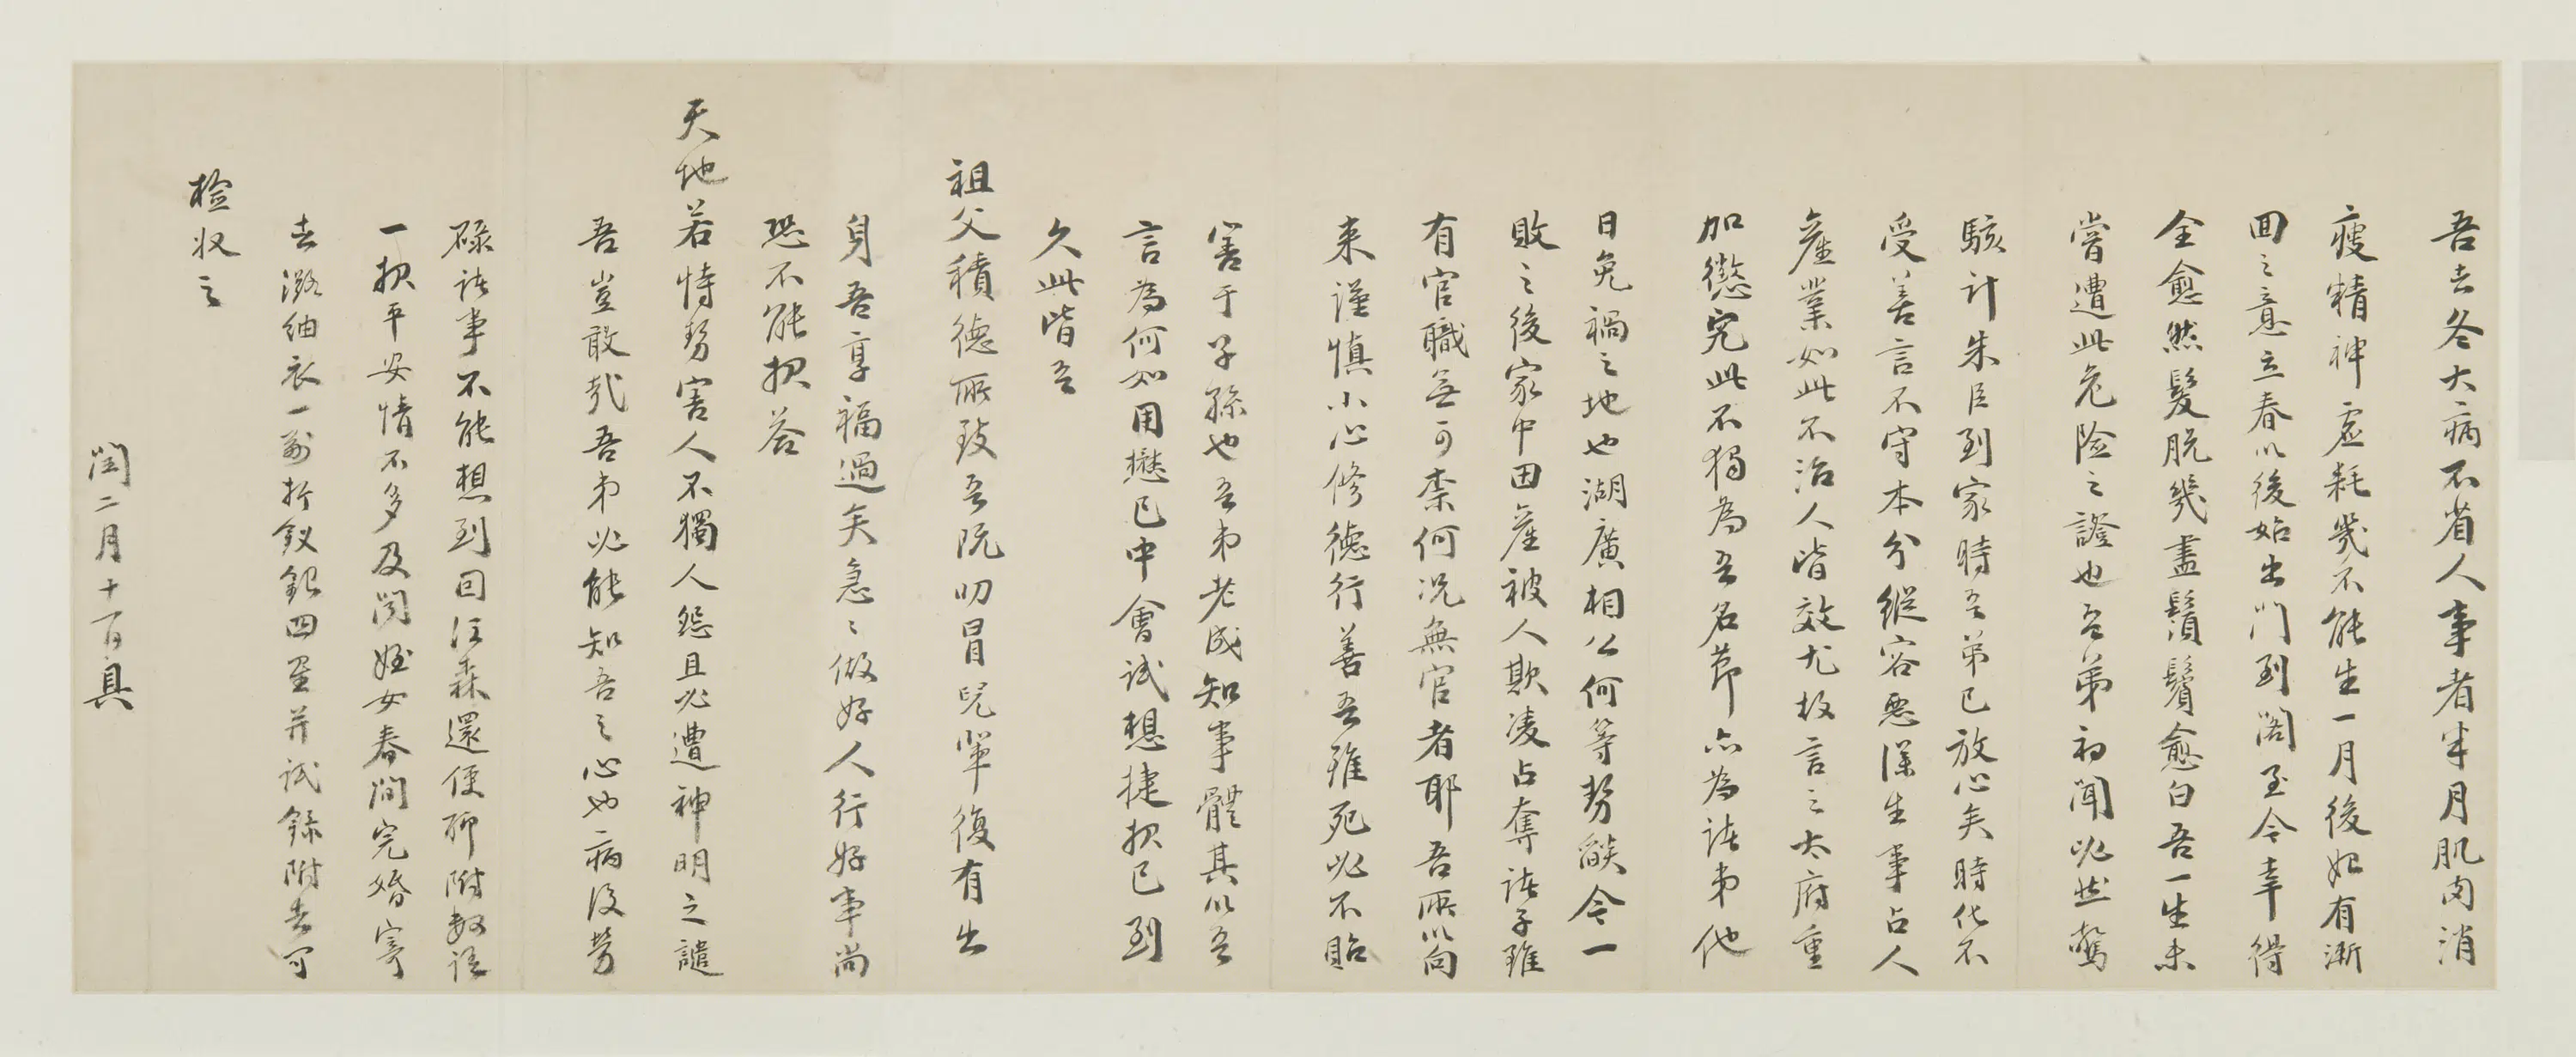 吾去冬大病不省人事者半月肌肉消
瘦精神虚耗幾不能生一月後始有漸
回之意立春以後始出門到閣至今幸得
全愈然髮脱幾盡鬚鬢愈白吾一生未
嘗遭此危险之證也吾弟初聞必然驚
駭計朱臣到家時吾弟已放心矣時化不
受善言不守本分縱容惡僕生事占人
產業如此不治人皆效尤故言之太府重
加懲究此不獨為吾名節亦為諸弟他
日免禍之地也湖廣相公何等勢燄今一
敗之後家中田產被人欺凌占奪諸子雖
有官職無可柰何況無官者耶吾所以尚
来謹慎小心修德行善吾雖死必不貽
害于子孫也吾弟老成知事體其以吾
言為何如用懋已中會試想捷报已到
久此皆吾
祖父積德所致吾既叨冒兒輩復有出
身吾享福過矣急々做好人行好事尚
恐不能报答
天地若恃勢害人不獨人怨且必遭神明之譴
吾豈敢哉吾弟必能知吾之心也病後勞
碌諸事不能想到因江森還便聊附數語
一报平安情不多及閏姪女春間完婚寄
去潞紬衣一套折釵銀四星并試錄附去可
檢收之
閏二月十一日具